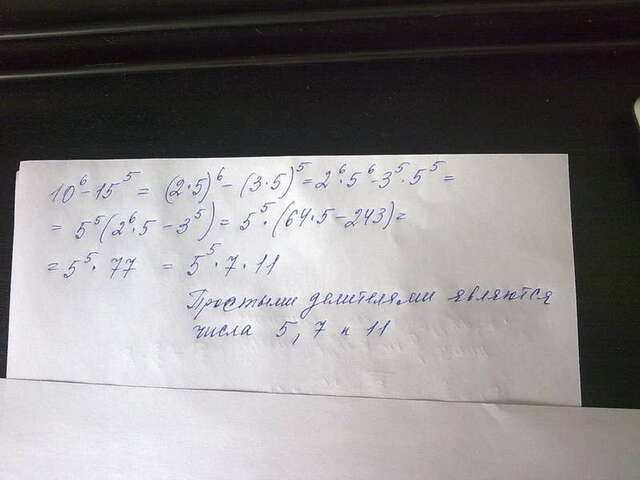 10⁶-15⁵ = (2·5)⁶-(3·5)⁵=2⁶·5⁶-3⁵·5⁵=
= 5⁵(2⁶·5-3⁵)= 5⁵·(64·5-243)=
= 5⁵·77 = 5⁵·7·11
Простыми делителями являются
числа 5, 7 и 11